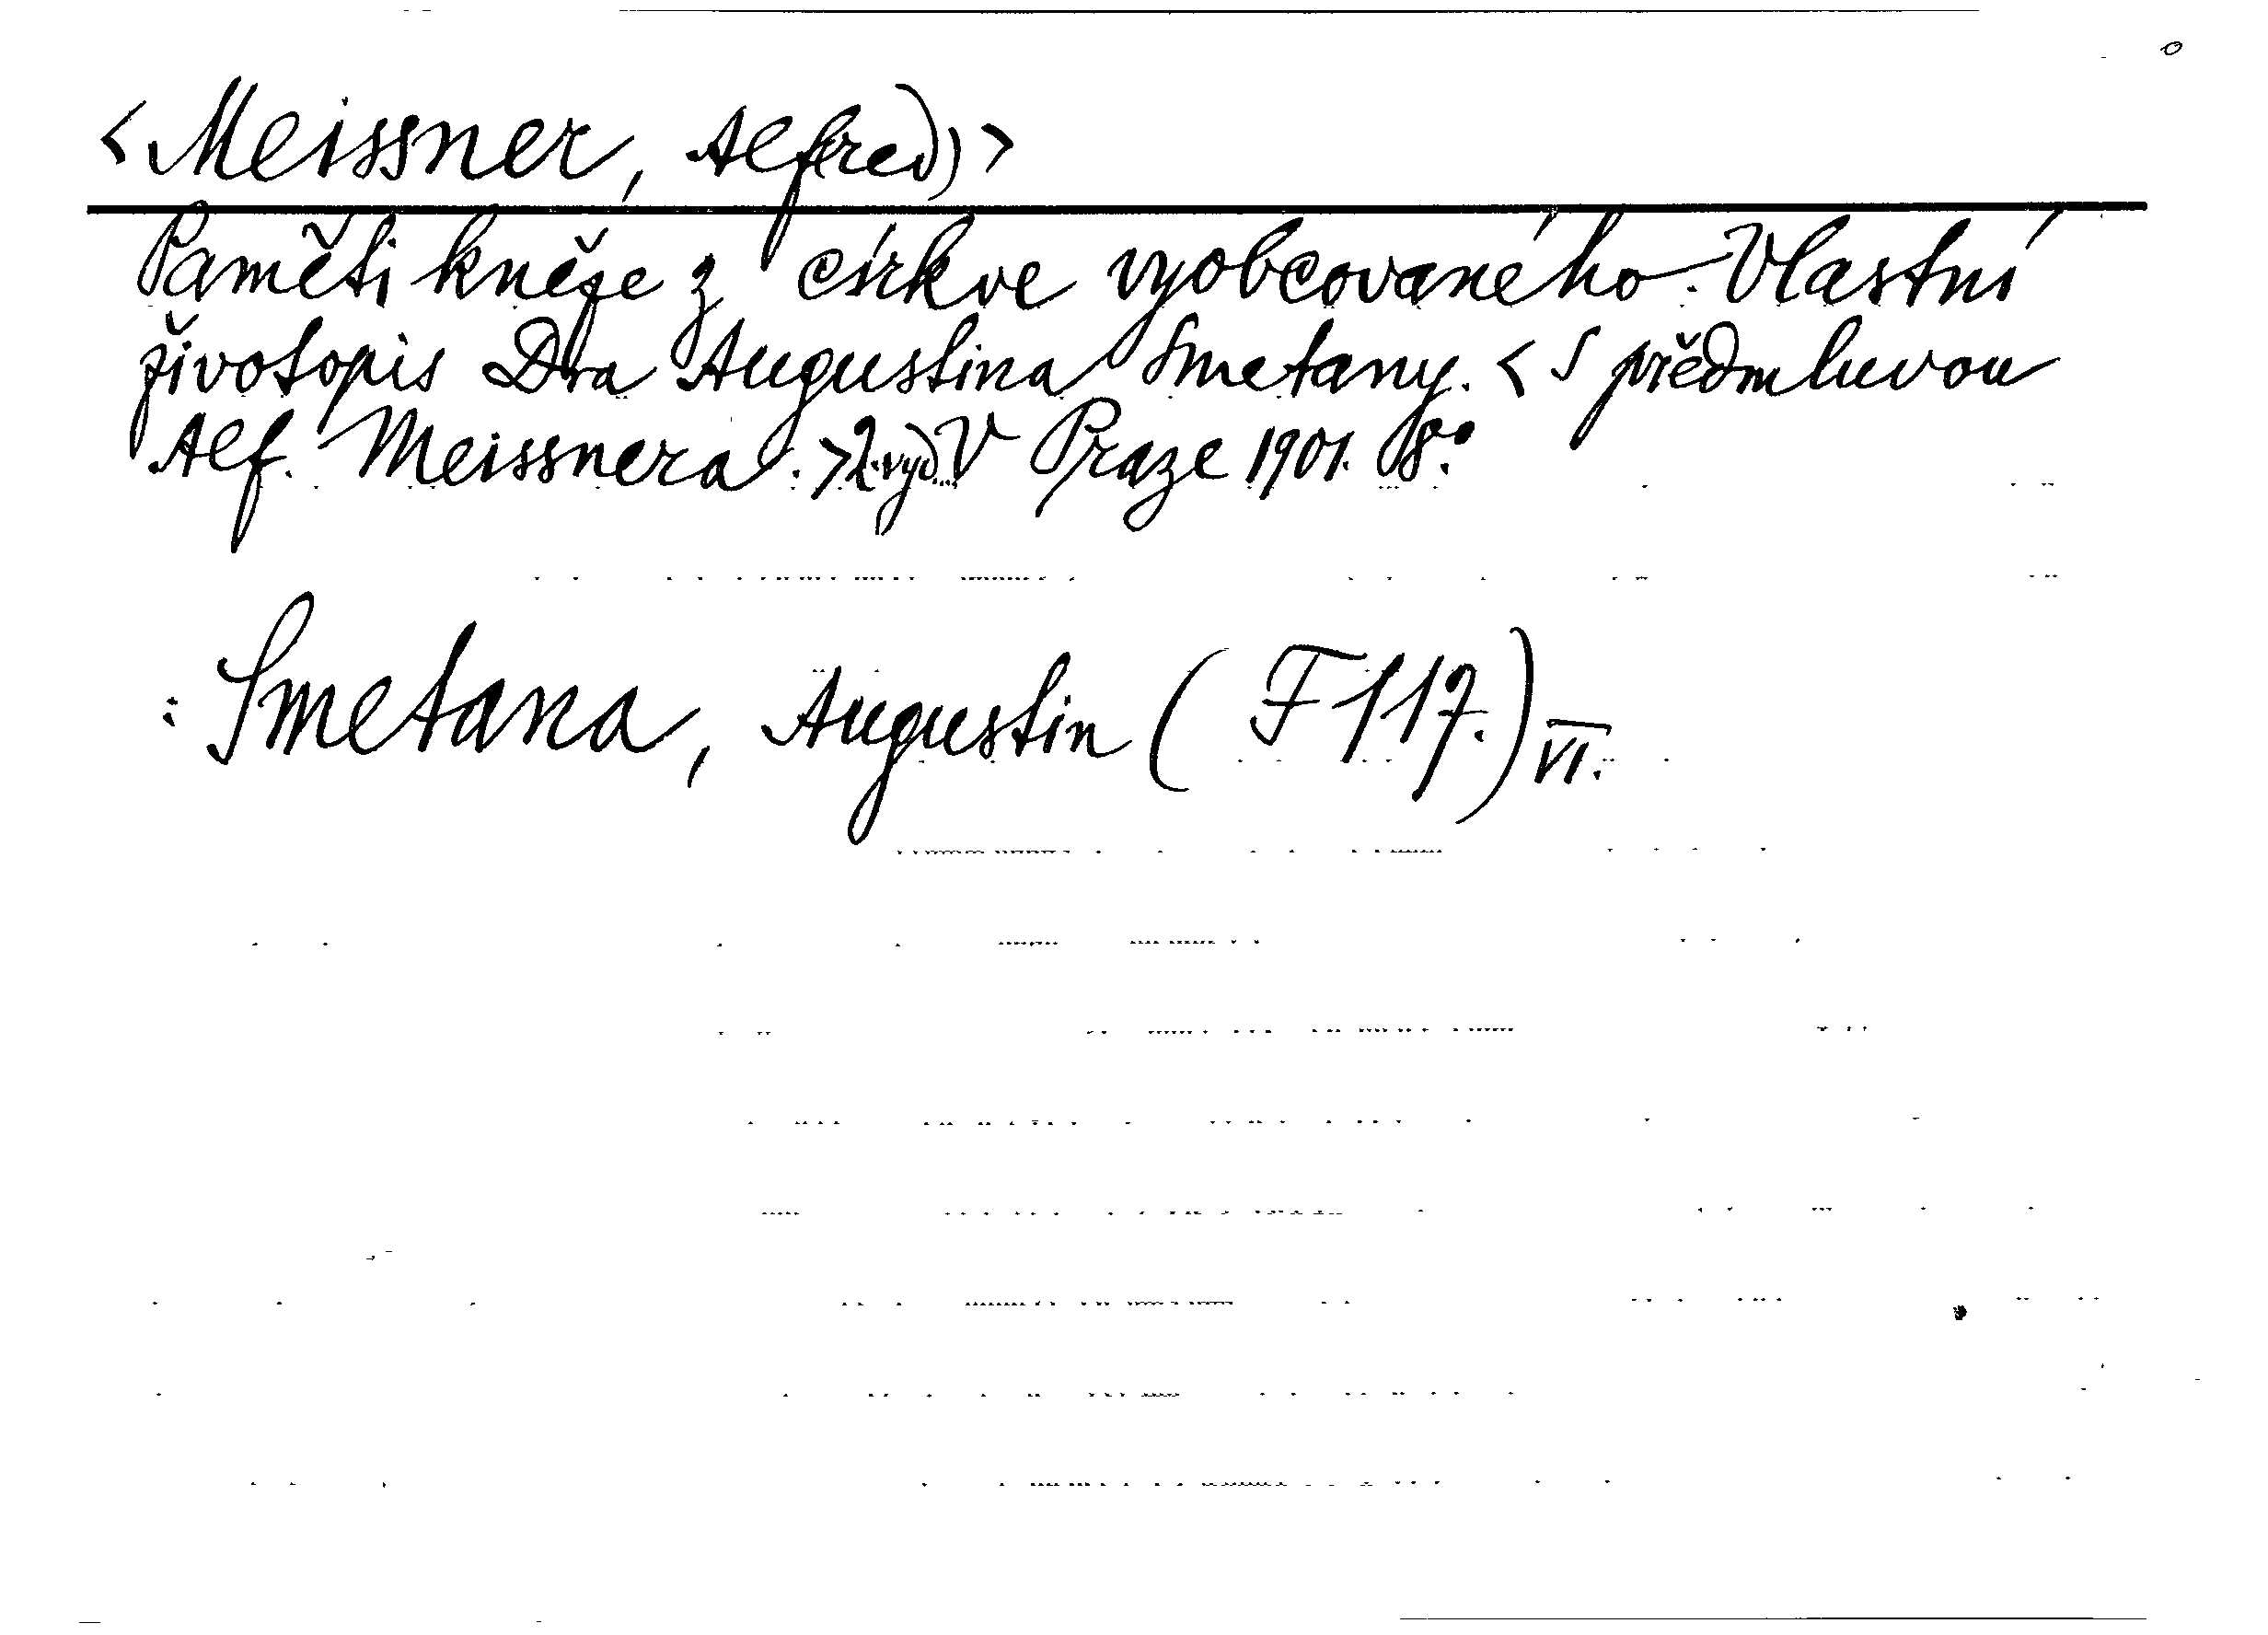 < Meissner, Alf(red) >
Paměti kněze z církve vyobcovaného. Vlastní
životopis Dra Augustina Smetany. < S předmluvou
Alf. Meissnera. > 2. vyd. V Praze 1901. 8°.
: Smetana, Augustin ( F 117. ) VI.